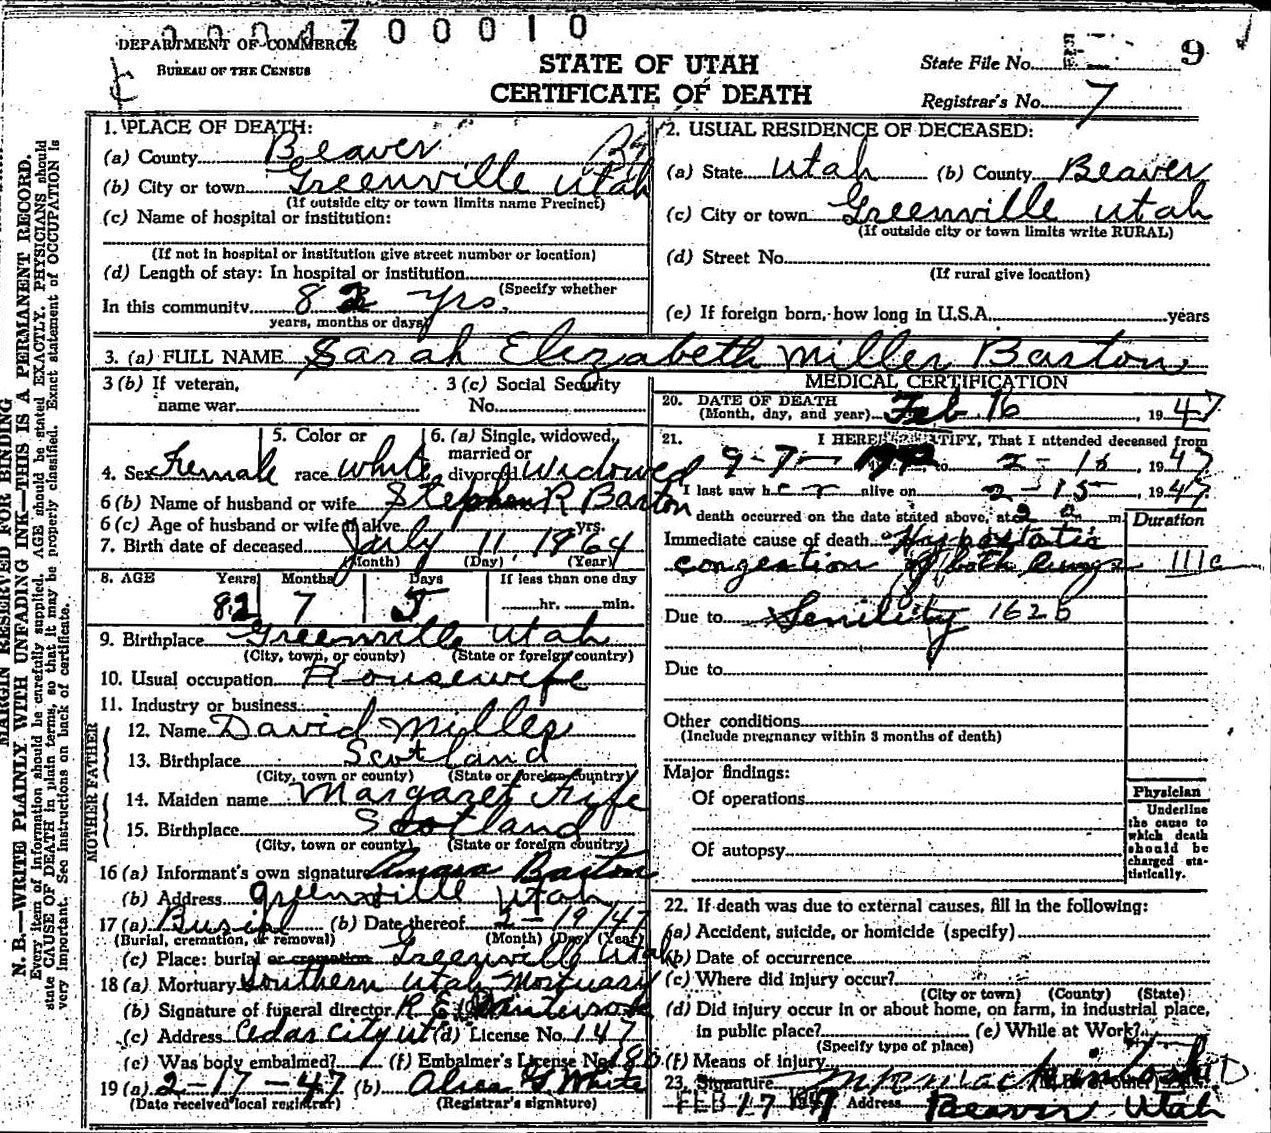 0004700010
DEPARTMENT OF COMMERCE
BUREAU OF THE CENSUS
STATE OF UTAH
CERTIFICATE OF DEATH
State File No. 9
Registrar's No. 7
MARGIN RESERVED FOR BINDING
N. B.—WRITE PLAINLY WITH UNFADING INK—THIS IS A PERMANENT RECORD.
Every item of information should be carefully supplied. AGE should be stated EXACTLY. PHYSICIANS should
state CAUSE OF DEATH in plain terms, so that it may be properly classified. Exact statement of OCCUPATION is
very important. See instructions on back of certificate.
1. PLACE OF DEATH:
(a) County Beaver
(b) City or town Greenville Utah
(If outside city or town limits name Precinct)
(c) Name of hospital or institution:
(If not in hospital or institution give street number or location)
(d) Length of stay: In hospital or institution
(Specify whether
In this community 82 yrs.
years, months or days)
2. USUAL RESIDENCE OF DECEASED:
(a) State Utah (b) County Beaver
(c) City or town Greenville Utah
(If outside city or town limits write RURAL)
(d) Street No.
(If rural give location)
(e) If foreign born, how long in U.S.A. years
3. (a) FULL NAME Sarah Elizabeth Miller Barton
3 (b) If veteran,
name war
3 (c) Social Security
No.
4. Sex Female
5. Color or
race white
6. (a) Single, widowed,
married or
divorced widowed
6 (b) Name of husband or wife Stephen R Barton
6 (c) Age of husband or wife if alive yrs.
7. Birth date of deceased July 11, 1864
(Month) (Day) (Year)
8. AGE Years Months Days If less than one day
82 7 5 hr. min.
9. Birthplace Greenville Utah
(City, town, or county) (State or foreign country)
10. Usual occupation Housewife
11. Industry or business
FATHER
12. Name David Miller
13. Birthplace Scotland
(City, town or county) (State or foreign country)
MOTHER
14. Maiden name Margaret Fife
15. Birthplace Scotland
(City, town or county) (State or foreign country)
16 (a) Informant's own signature Barton
(b) Address Greenville Utah
17 (a) Burial (b) Date thereof 2-19/47
(Burial, cremation, or removal) (Month) (Day) (Year)
(c) Place: burial or cremation Greenville Utah
18 (a) Mortuary Southern Utah Mortuary
(b) Signature of funeral director R. E.
(c) Address Cedar City Ut (d) License No. 147
(e) Was body embalmed? (f) Embalmer's License No.
19 (a) 2-17-47 (b) Alice White
(Date received local registrar) (Registrar's signature)
MEDICAL CERTIFICATION
20. DATE OF DEATH
(Month, day, and year) Feb 16, 1947
21. I HEREBY CERTIFY, That I attended deceased from
9-7- to 2-16, 1947
I last saw her alive on 2-15, 1947
death occurred on the date stated above, at 2 a m.
Duration
Immediate cause of death Hypostatic
congestion of both lungs 111a
Due to Senility 162b
Due to
Other conditions
(Include pregnancy within 3 months of death)
Major findings:
Of operations
Of autopsy
Physician
Underline
the cause to
which death
should be
charged sta-
tistically.
22. If death was due to external causes, fill in the following:
(a) Accident, suicide, or homicide (specify)
(b) Date of occurrence
(c) Where did injury occur?
(City or town) (County) (State)
(d) Did injury occur in or about home, on farm, in industrial place,
in public place? (e) While at Work?
(Specify type of place)
(f) Means of injury
23. Signature
FEB 17 1947 Address Beaver Utah